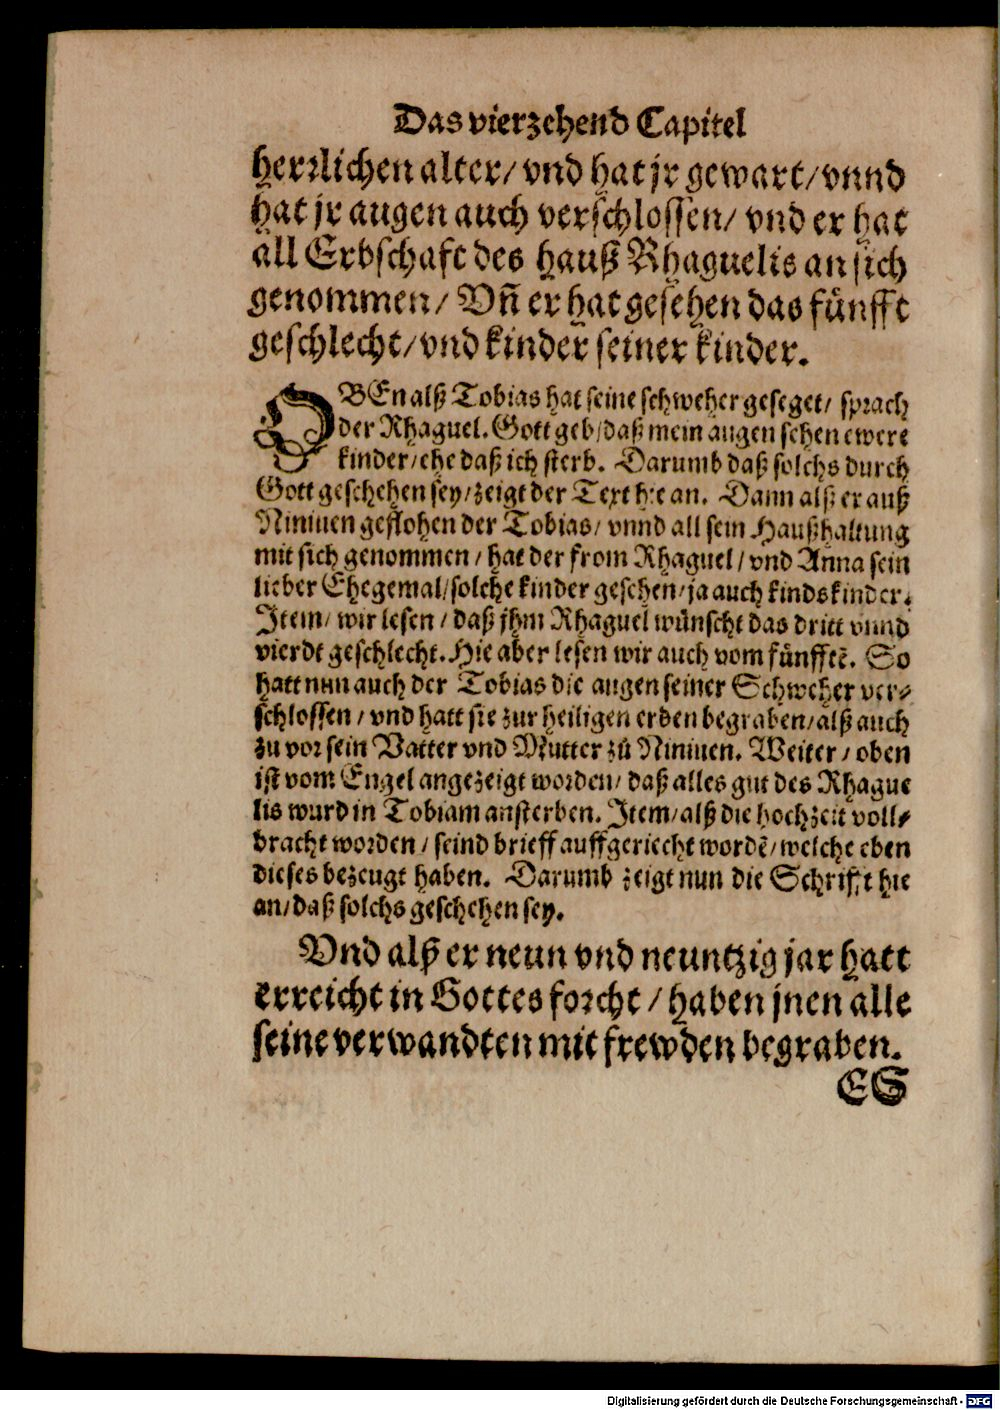 Das vierzehend Capitel
herꝛlichen alter/ vnd hat jr gewart/ vnnd
hat jr augen auch verschlossen/ vnd er hat
all Erbschaft des hauß Rhaguelis an sich
genommen/ Vñ er hat gesehen das fünfft
geschlecht/ vnd kinder seiner kinder.
OBEn alß Tobias hat seine schweher geseget/ sprach
der Rhaguel. Gott geb/ daß mein augen sehen ewere
kinder/ ehe daß ich sterb. Darumb daß solchs durch
Gott geschehen sey/ zeigt der Text hie an. Dann alß er auß
Niniuen geflohen der Tobias/ vnnd all sein Haußhaltung
mit sich genommen/ hat der from Rhaguel/ vnd Anna sein
lieber Ehegemal/ solche kinder gesehen/ ja auch kindskinder.
Item/ wir lesen/ daß jhm Rhaguel wünscht das dritt vnnd
vierdt geschlecht. Hie aber lesen wir auch vom fünfftē. So
hatt nun auch der Tobias die augen seiner Schweher ver⸗
schlossen/ vnd hatt sie zur heiligen erden begraben/ alß auch
zu vor sein Vatter vnd Mutter zů Niniuen. Weiter/ oben
ist vom Engel angezeigt worden/ daß alles gut des Rhague
lis wurd in Tobiam ansterben. Item/ alß die hochzeit voll⸗
bracht worden/ seind brieff auffgeriecht wordē/ welche eben
dieses bezeugt haben. Darumb zeigt nun die Schrifft hie
an/ daß solchs geschehen sey.
Vnd alß er neun vnd neuntzig jar hatt
erreicht in Gottes forcht/ haben jnen alle
seine verwandten mit frewden begraben.
ES
Digitalisierung gefördert durch die Deutsche Forschungsgemeinschaft - DFG